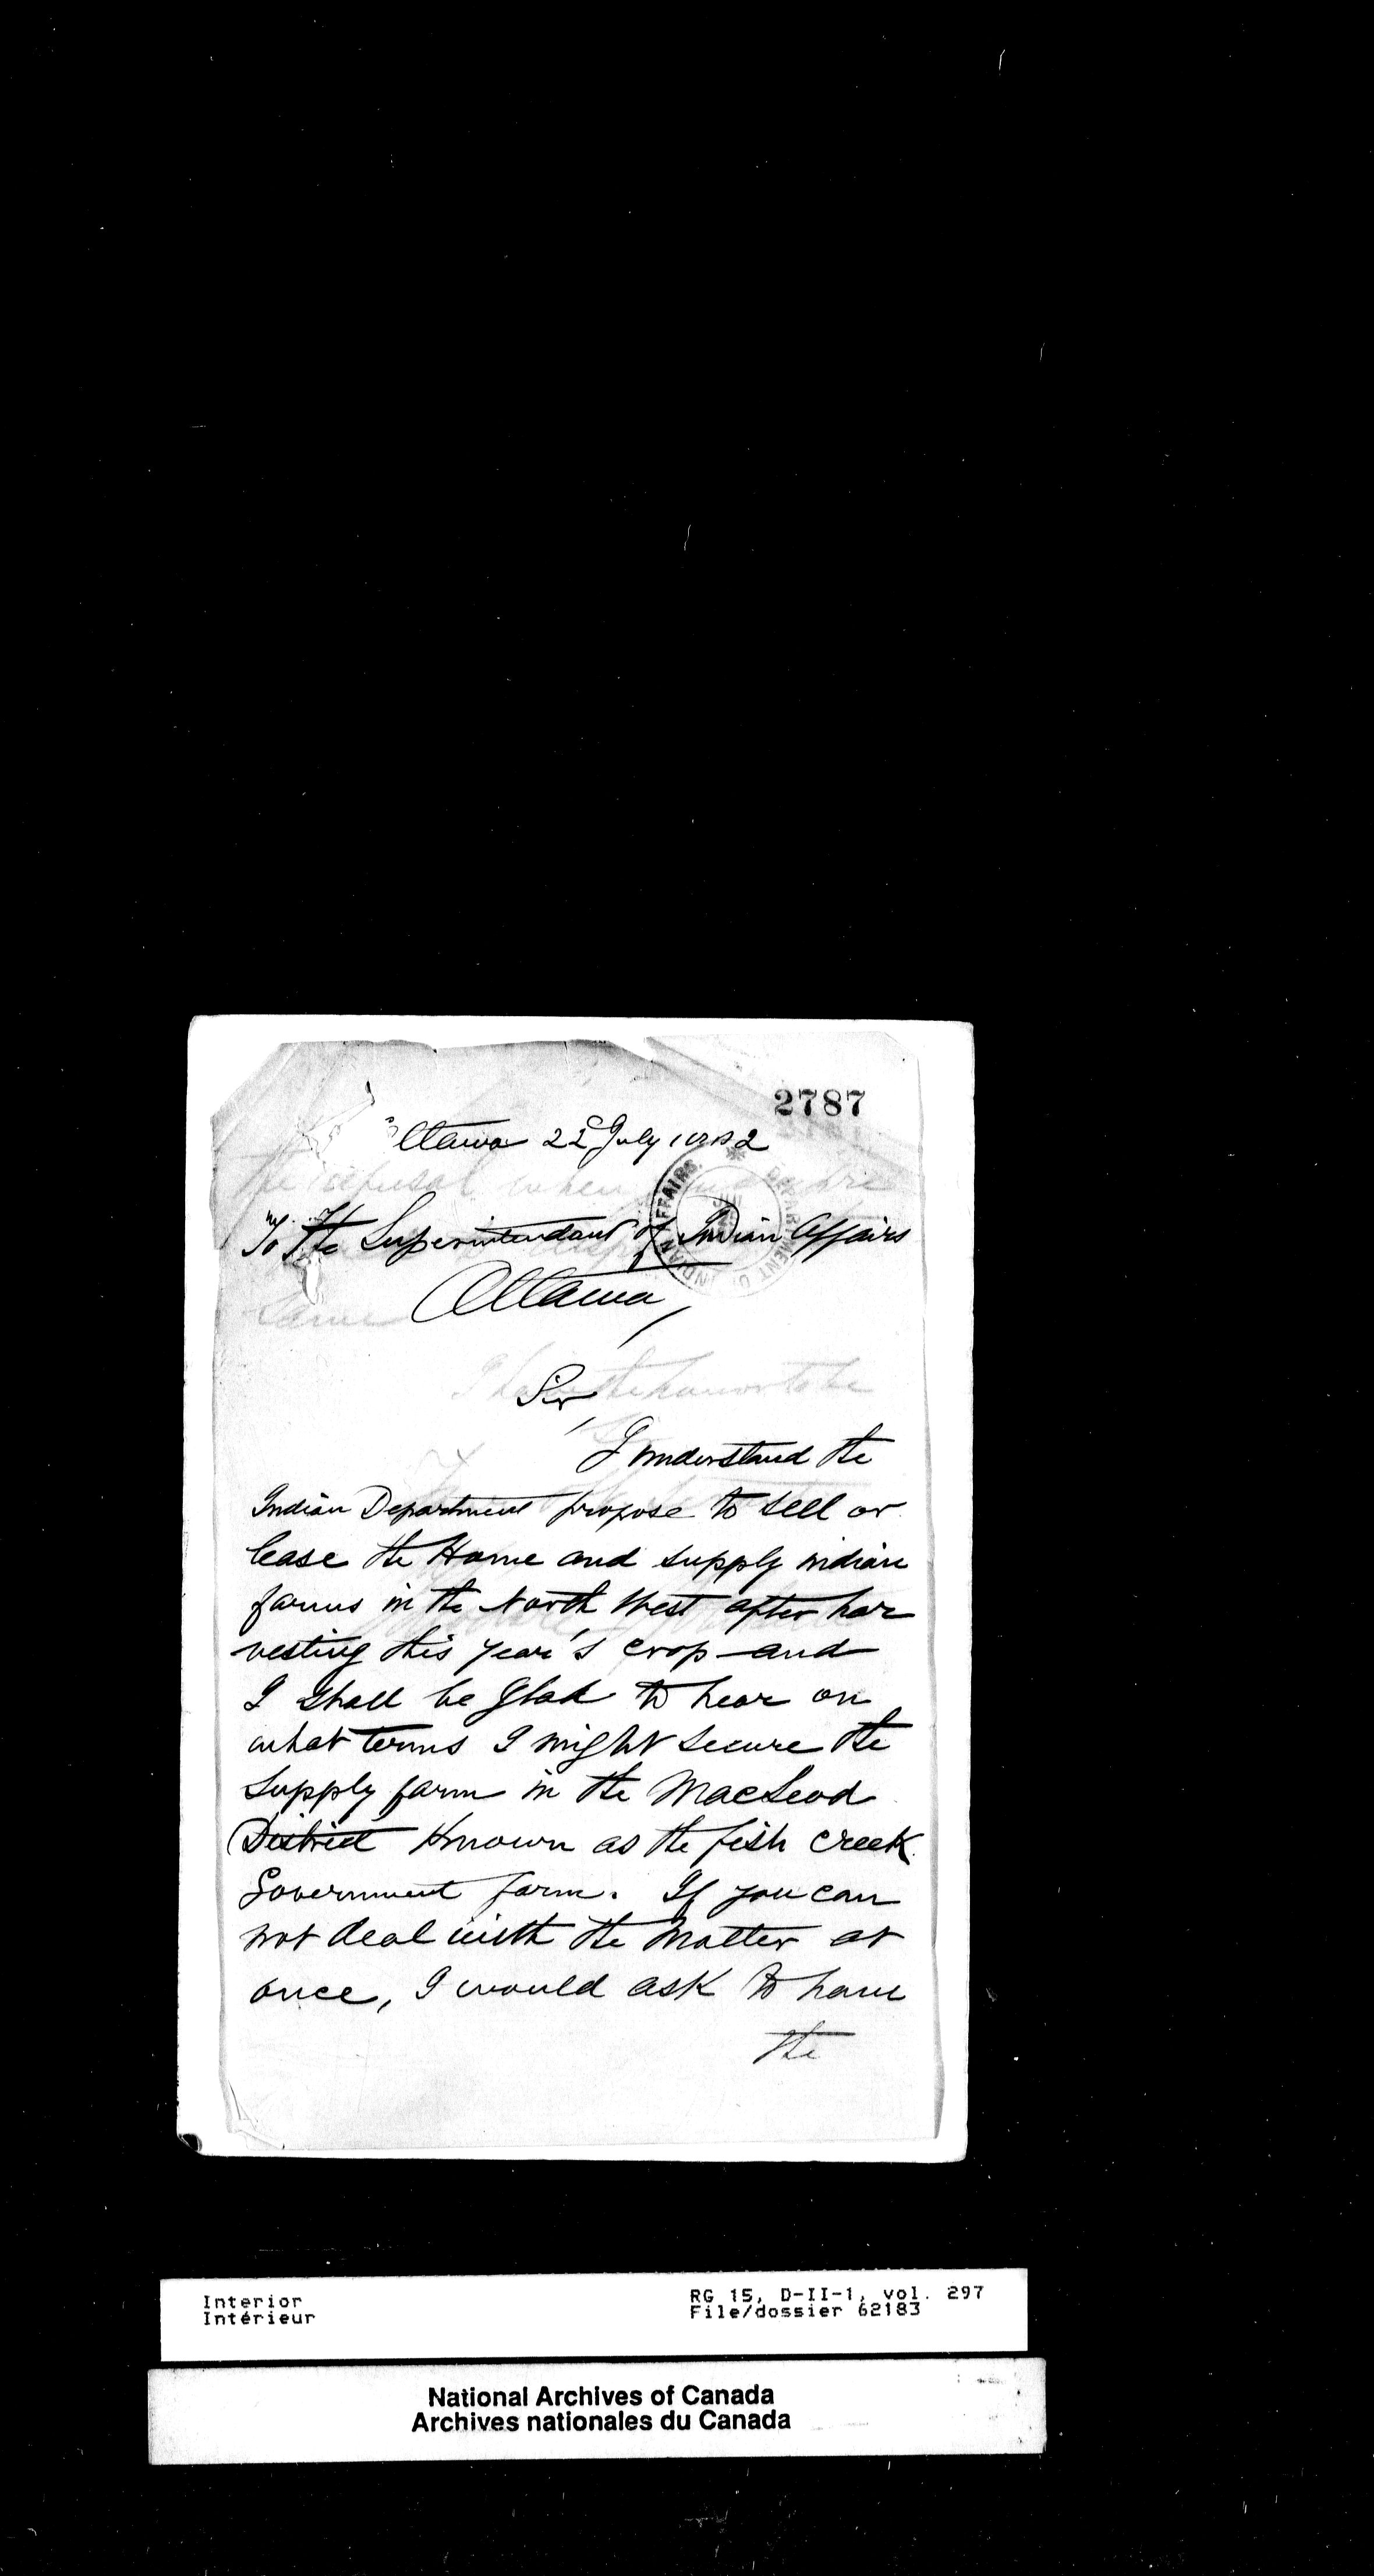 2787
Ottawa 22 July 1882
To The Superintendant of Indian Affairs
Ottawa
DEPARTMENT OF INDIAN AFFAIRS.
Sir
I understand the
Indian Department propose to sell or
lease the Home and supply indian
farms in the North West after har
vesting this year's crop and
I shall be glad to hear on
what terms I might secure the
supply farm in the MacLeod
District known as the fish creek
Government farm. If you can
not deal with the matter at
once, I would ask to have
the
Interior
Intérieur
RG 15, D-II-1, vol. 297
File/dossier 62183
National Archives of Canada
Archives nationales du Canada